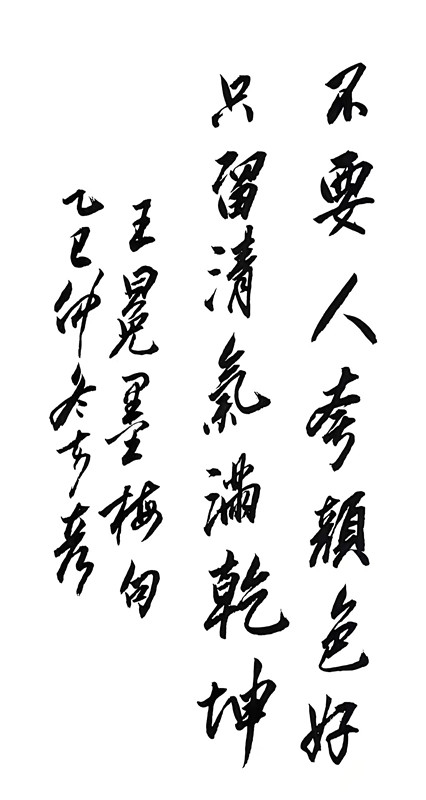 不要人夸顔色好
只留清氣滿乾坤
王冕墨梅句
乙巳仲冬方彦